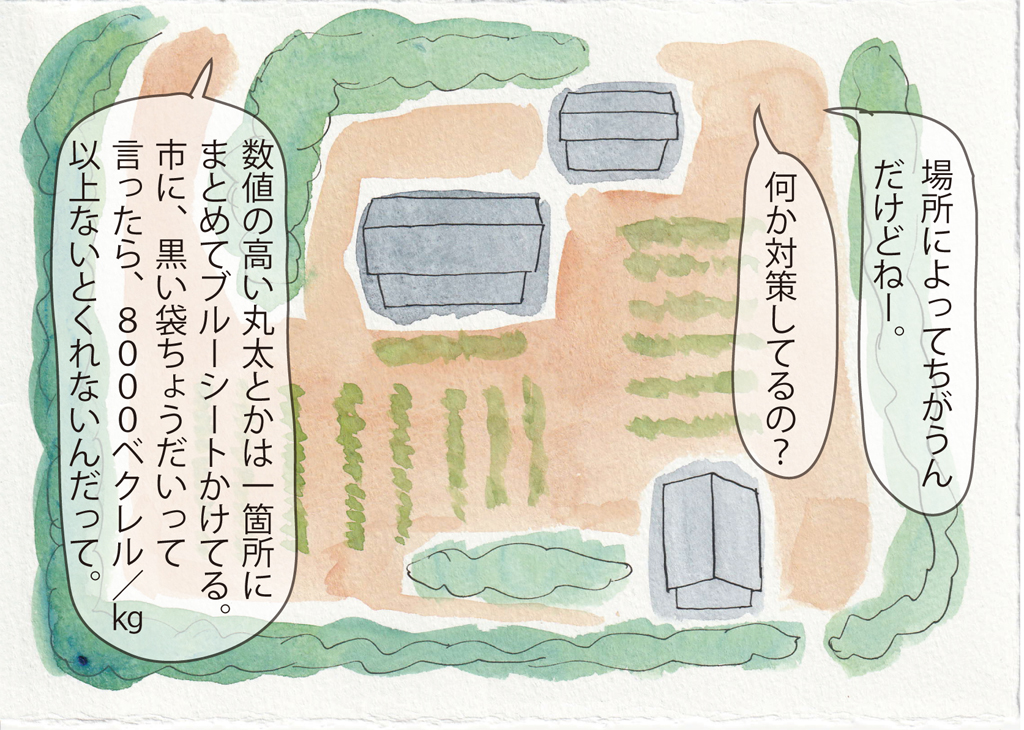 場所によってちがうん
だけどねー。
何か対策してるの？
数値の高い丸太とかは一箇所に
まとめてブルーシートかけてる。
市に、黒い袋ちょうだいって
言ったら、８０００ベクレル／kg
以上ないとくれないんだって。